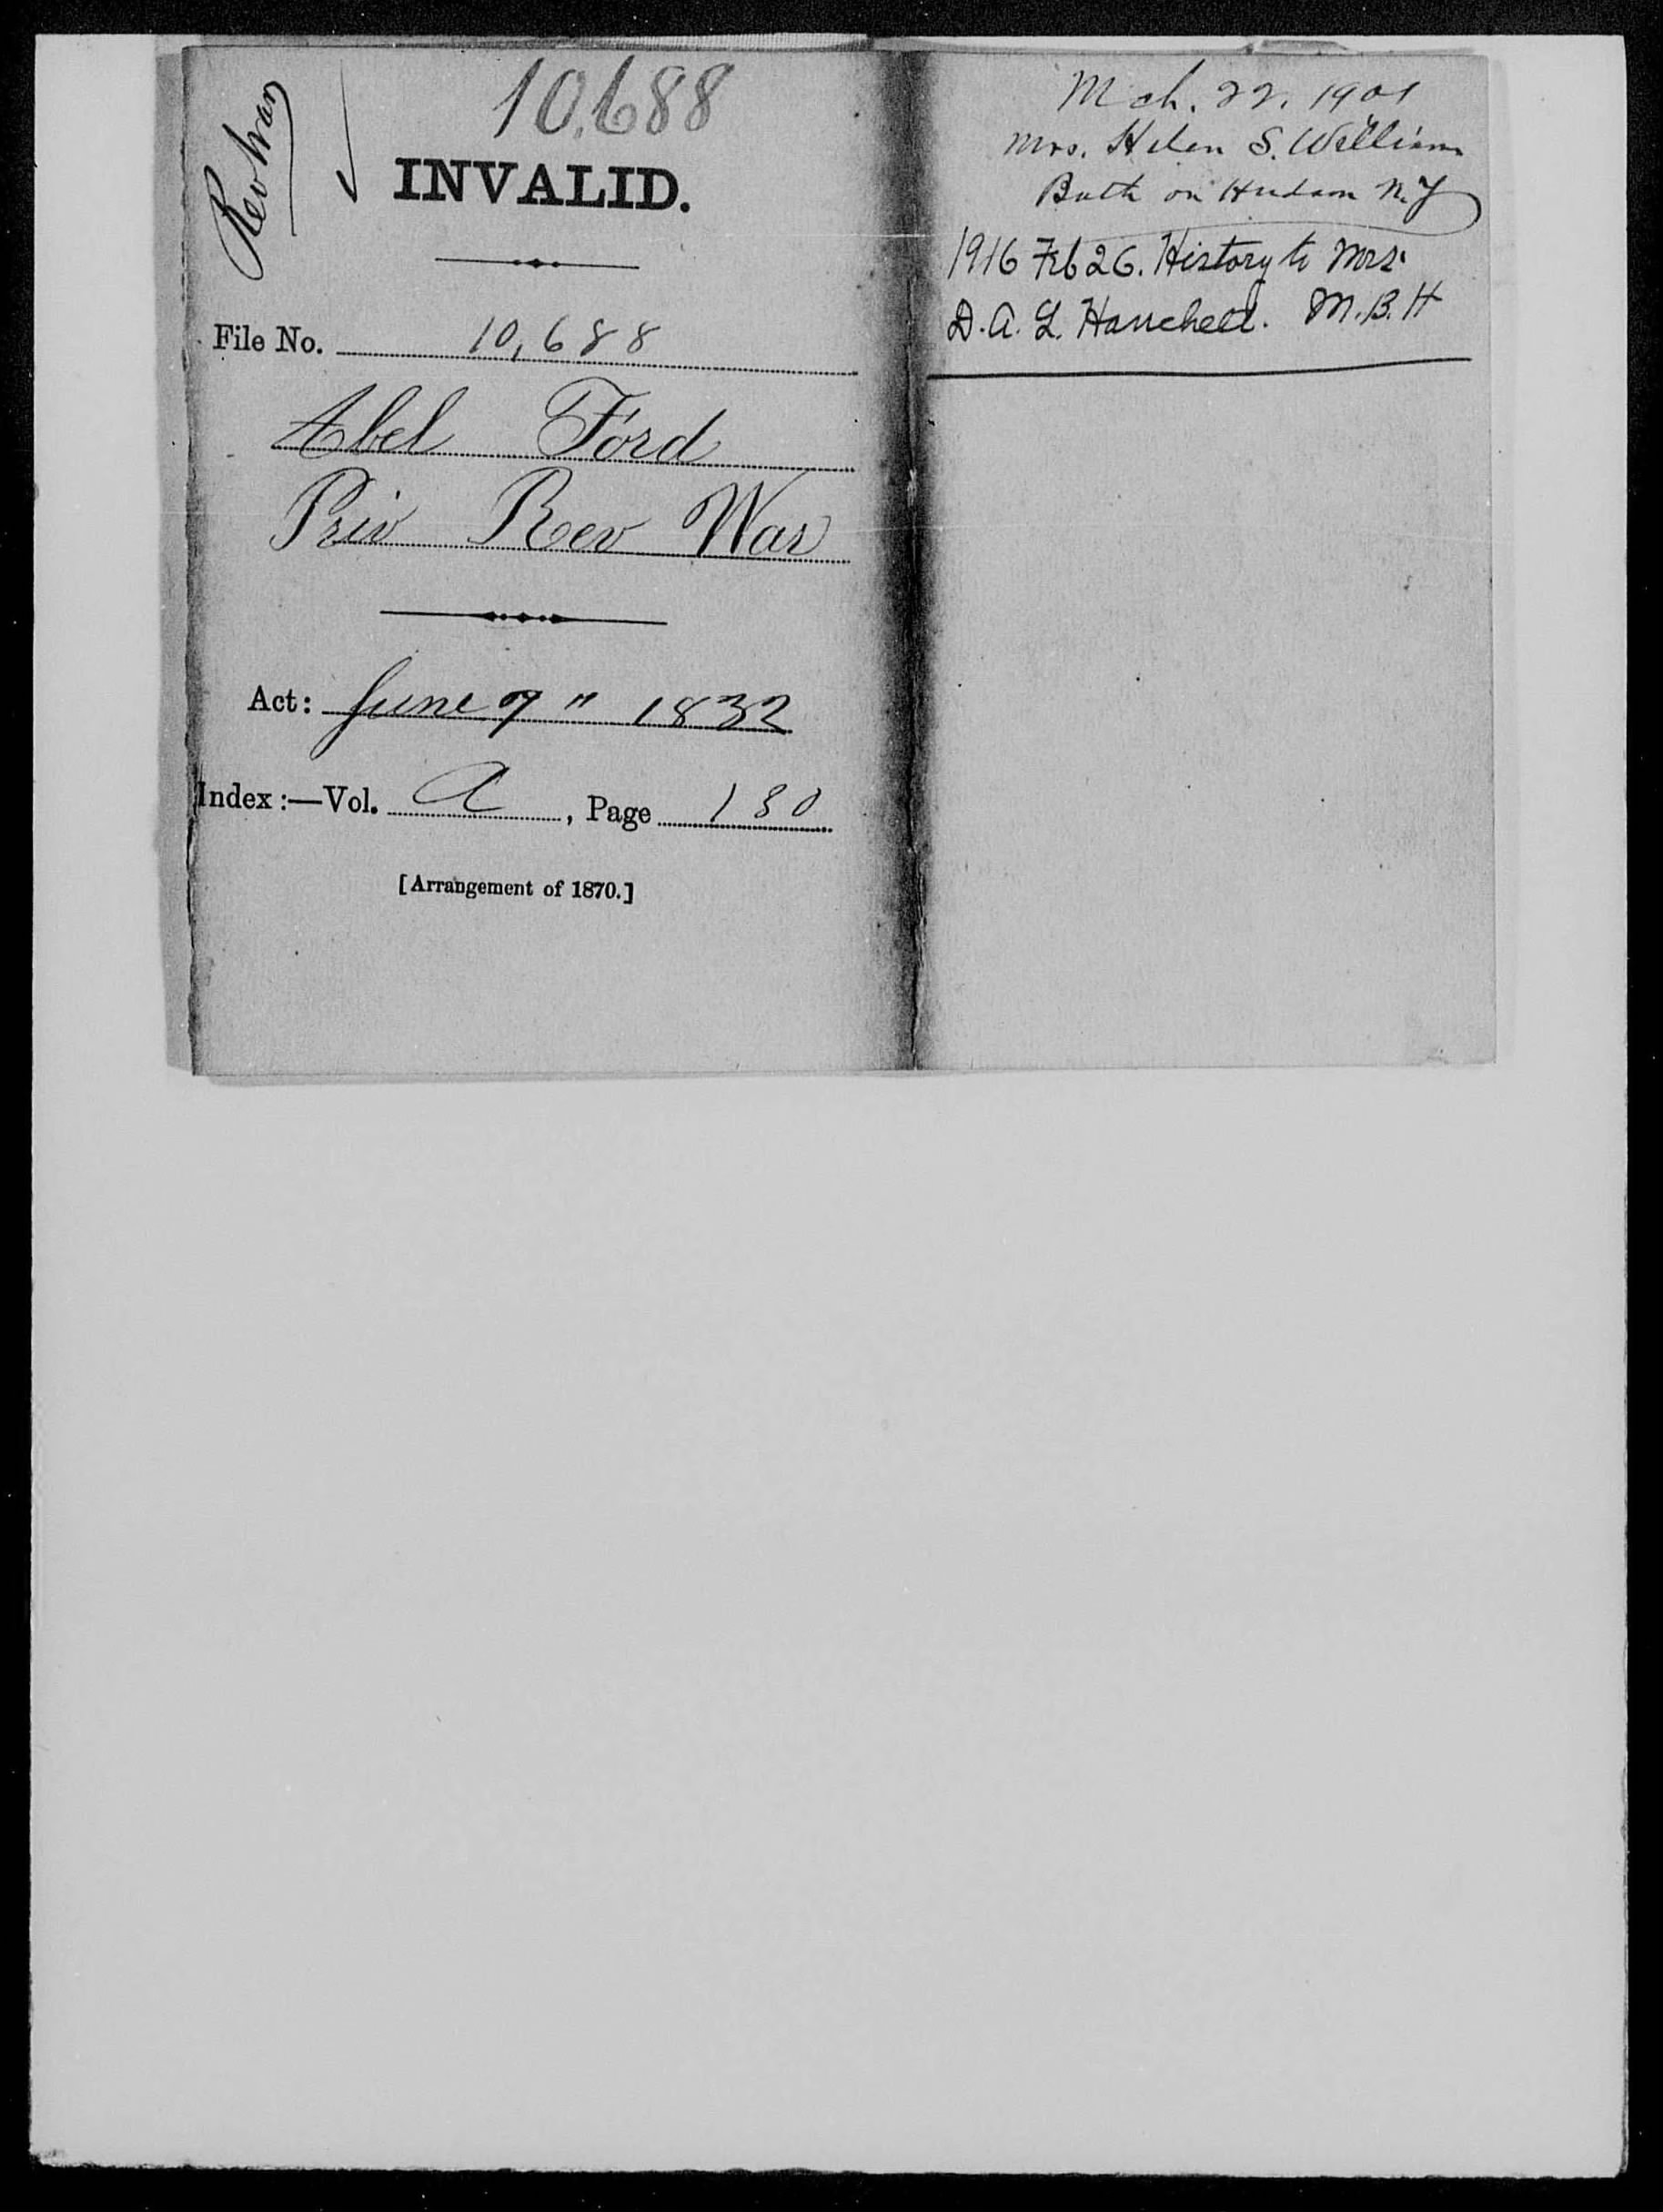 Rev War
10,688
INVALID.
File No. 10,688
Abel Ford
Priv Rev War
Act: June 7" 1832
Index:—Vol. A, Page 130
[Arrangement of 1870.]
Mch. 22, 1901
Mrs. Helen S. Williams
Bath on Hudson N.Y
1916 Feb 26. History to Mrs.
D. A. L. M. B. H